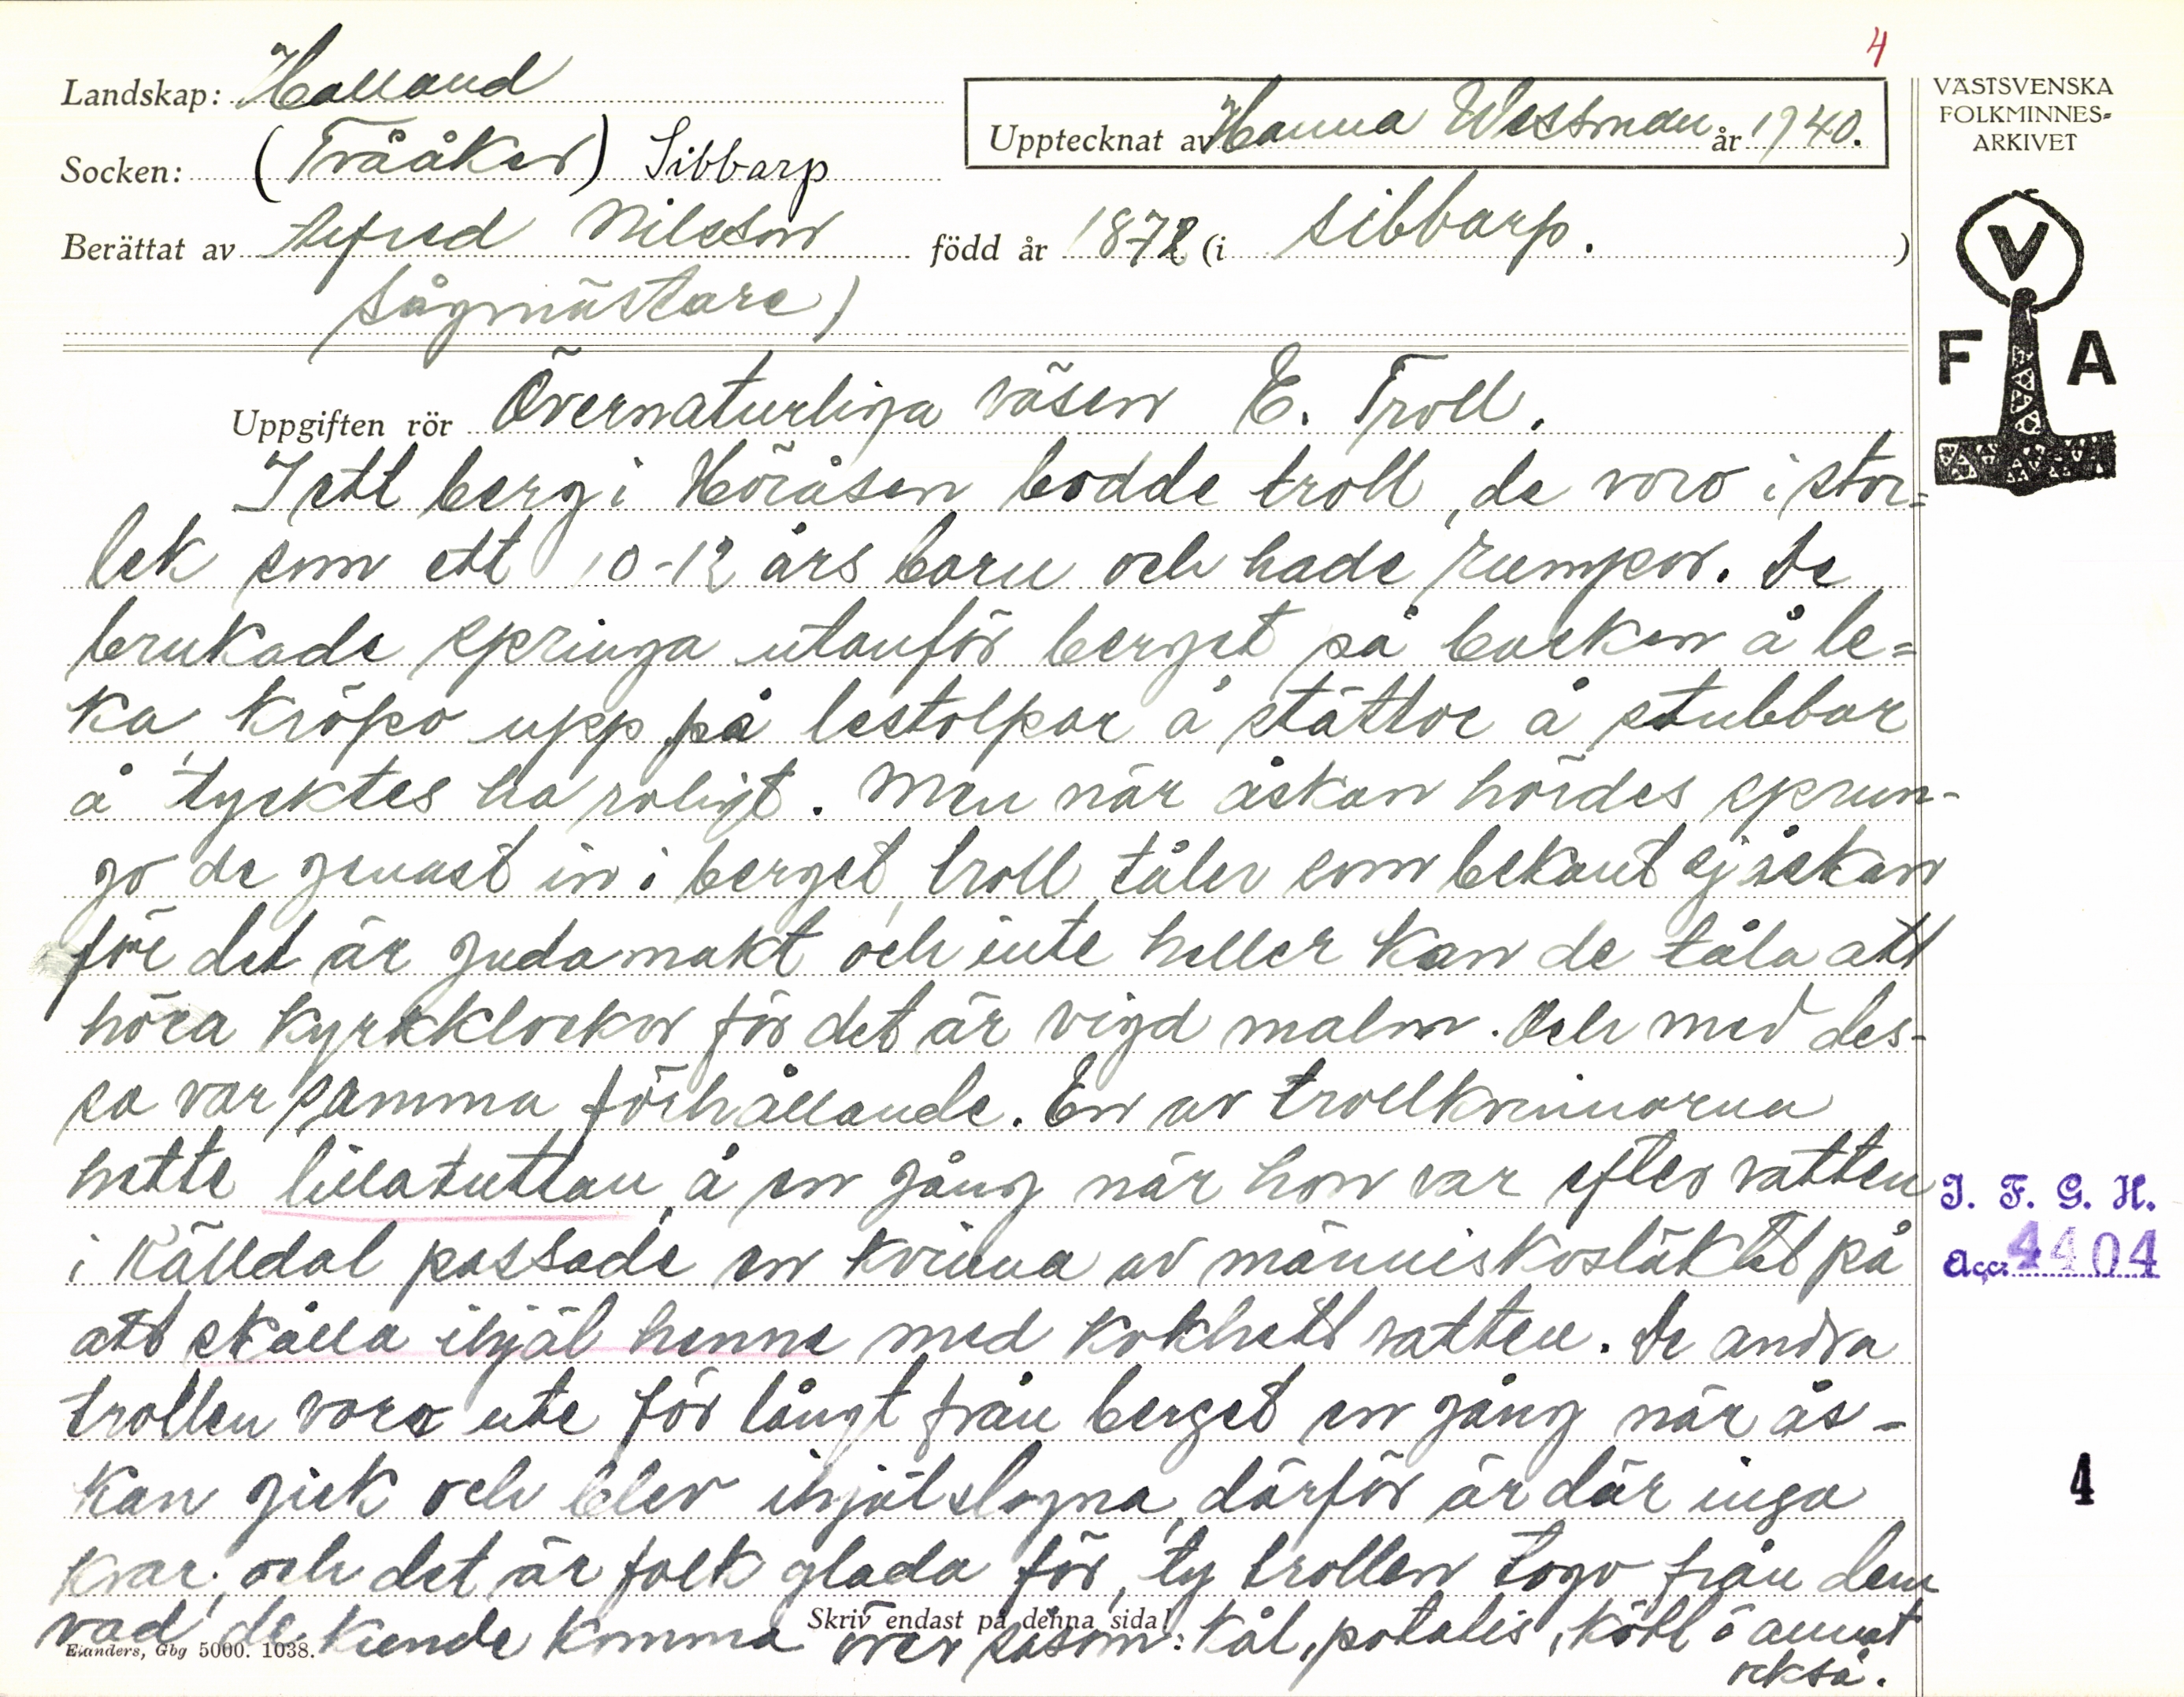 4
Landskap: Halland
Upptecknat av Hanna Wessman år 1940.
VÄSTSVENSKA
FOLKMINNES=
ARKIVET
Socken: (Tvååker) Sibbarp
Berättat av Alfred Nilsson född år 1872 (i Sibbarp. )
sågmästare)
V
F A
Uppgiften rör Övernaturliga väsen E. Troll.
I ett berg i Höråsen bodde troll, de voro i stor=
lek som ett 10-12 års barn och hade rumpor. De
brukade springa utanför berget på backen å le=
ka, kröpo upp på lestolpar å stättor å stubbar
å tycktes ha roligt. Men när åskan hördes sprun-
go de genast in i berget, troll tåler som bekant ej åskan
för det är gudamakt och inte heller kan de tåla att
höra kyrkklockor för det är vigd malm. Och med des-
sa var samma förhållande. En av trollkvinnorna
hette lillatuttan, å en gång när hon var efter vatten
i Källdal passade en kvinna av människosläktet på
att skålla ihjäl henne med kokhett vatten. De andra
trollen voro ute för långt från berget en gång när ås-
kan gick och blev ihjälslagna, därför är där inga
kvar, och det är folk glada för, ty trollen togo från dem
vad de kunde komma över såsom: kål, potatis, kött å annat
också.
Skriv endast på denna sida!
Elanders, Gbg 5000. 1038.
I. F. G. H.
Acc. 4404
4